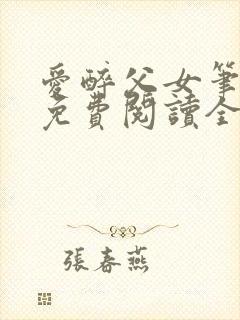 愛醉父女筆
免費閱讀全
張春燕